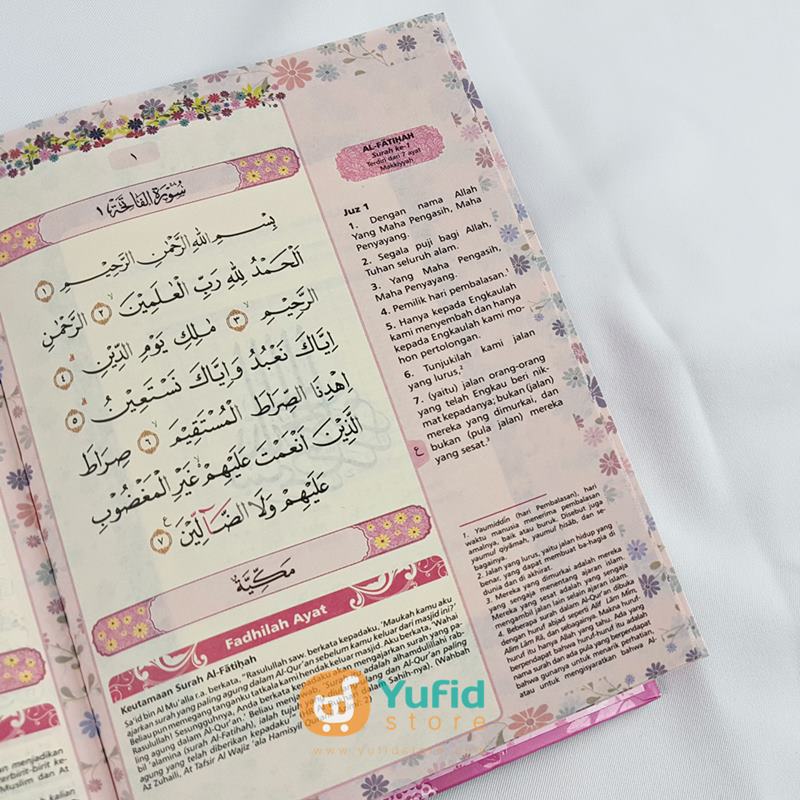 ١
سُوْرَةُ الْفَاتِحَةِ ١
بِسْمِ اللّٰهِ الرَّحْمٰنِ الرَّحِيْمِ ١
اَلْحَمْدُ لِلّٰهِ رَبِّ الْعٰلَمِيْنَ ٢ الرَّحْمٰنِ
الرَّحِيْمِ ٣ مٰلِكِ يَوْمِ الدِّيْنِ ٤
اِيَّاكَ نَعْبُدُ وَاِيَّاكَ نَسْتَعِيْنُ ٥
اِهْدِنَا الصِّرَاطَ الْمُسْتَقِيْمَ ٦ صِرَاطَ
الَّذِيْنَ اَنْعَمْتَ عَلَيْهِمْ غَيْرِ الْمَغْضُوْبِ
عَلَيْهِمْ وَلَا الضَّاۤلِّيْنَ ٧
مَكِّيَّة
Fadhilah Ayat
Keutamaan Surah Al-Fātiḥah
Sa'id bin Al Mu'alla r.a. berkata, "Rasulullah saw. berkata kepadaku, 'Maukah kamu aku
ajarkan surah yang paling agung dalam Al-Qur'an sebelum kamu keluar dari masjid ini?'
Beliau pun memegang tanganku tatkala kami hendak keluar masjid. Aku berkata, 'Wahai
Rasulullah! Sesungguhnya, Anda berkata kepadaku akan mengajarkan surah yang pa-
ling agung dalam Al-Qur'an.' Beliau menjawab, 'Surah
bil 'alamina (surah Al-Fatihah), ialah
agung yang telah diberikan kepadaku
Az Zuhaili, At Tafsir Al Wajiz 'ala Hamisyil
AL-FĀTIḤAH
Surah ke-1
Terdiri dari 7 ayat
Makkiyyah
Juz 1
1. Dengan nama Allah
Yang Maha Pengasih, Maha
Penyayang.
2. Segala puji bagi Allah,
Tuhan seluruh alam.
3. Yang Maha Pengasih,
Maha Penyayang.
4. Pemilik hari pembalasan.¹
5. Hanya kepada Engkaulah
kami menyembah dan hanya
kepada Engkaulah kami mo-
hon pertolongan.
6. Tunjukilah kami jalan
yang lurus,²
7. (yaitu) jalan orang-orang
yang telah Engkau beri nik-
mat kepadanya; bukan (jalan)
mereka yang dimurkai, dan
bukan (pula jalan) mereka
yang sesat.³
ع
1. Yaumiddīn (hari Pembalasan), hari
waktu manusia menerima pembalasan
amalnya, baik atau buruk. Disebut juga
yaumul qiyāmah, yaumul ḥisāb, dan se-
bagainya.
2 Jalan yang lurus, yaitu jalan hidup yang
benar, yang dapat membuat bahagia di
dunia dan di akhirat.
3. Mereka yang dimurkai adalah mereka
yang sengaja menentang ajaran islam.
Mereka yang sesat adalah yang sengaja
mengambil jalan lain selain ajaran islam.
4. Beberapa surah dalam Al-Qur'an dibuka
dengan huruf abjad seperti Alif Lām Mīm,
Alim Lām Rā, dan sebagainya. Makna huruf-
huruf itu hanya Allah yang tahu. Ada yang
berpendapat bahwa huruf-huruf itu adalah
nama surah dan ada pula yang berpendapat
bahwa gunanya untuk menarik perhatian,
atau untuk mengisyaratkan bahwa Al-
Yufid
store
www.yufidstore.com
menjadikan
terbirit-birit ke-
Muslim dan At
kalian